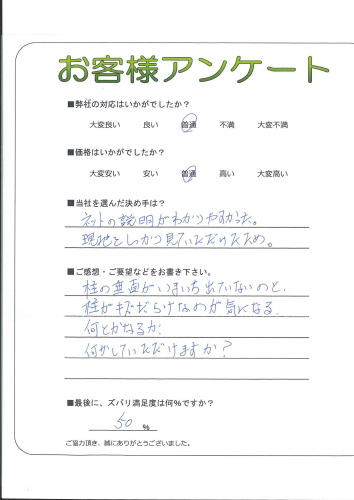 お客様アンケート
■弊社の対応はいかがでしたか?
大変良い 良い 普通 不満 大変不満
■価格はいかがでしたか?
大変安い 安い 普通 高い 大変高い
■当社を選んだ決め手は?
ネットの説明がわかりやすかった。
現地をしっかり見ていただけたため。
■ご感想・ご要望などをお書き下さい。
柱の垂直がいまいち出ていないのと、
柱がキズだらけなのが気になる。
何とかなるか、
何かしていただけますか?
■最後に、ズバリ満足度は何%ですか?
50 %
ご協力頂き、誠にありがとうございました。